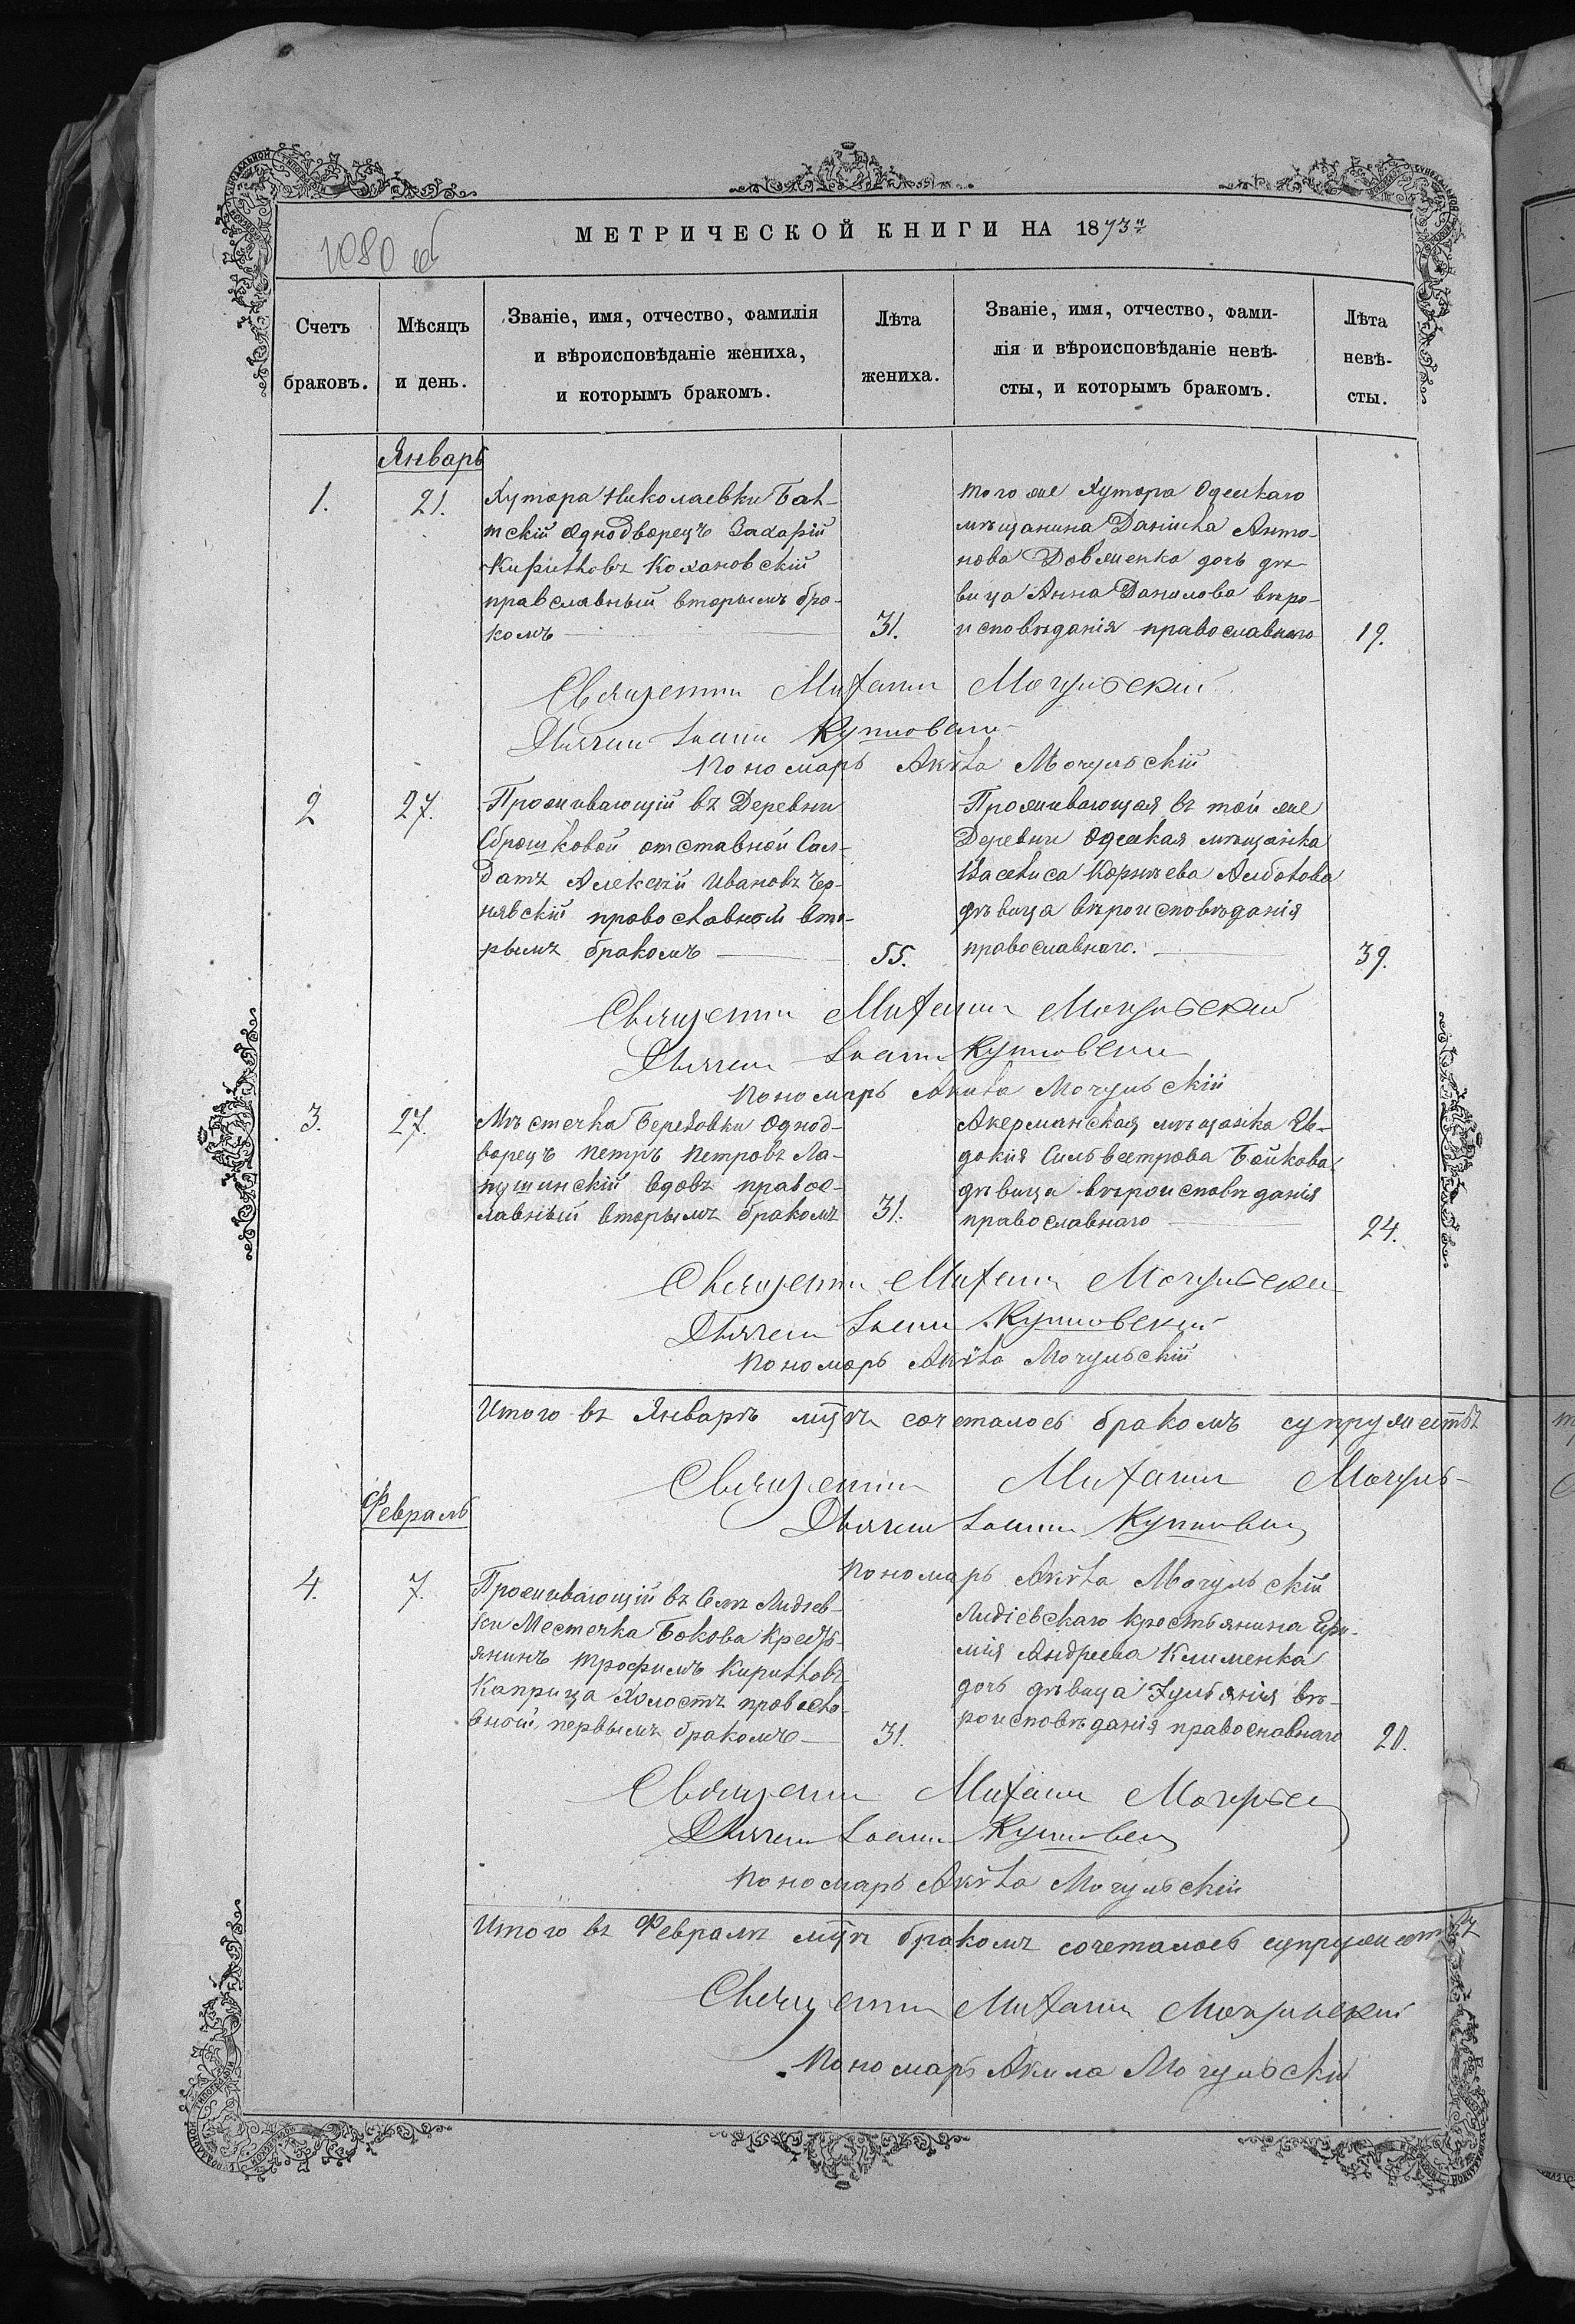 1080 об
МЕТРИЧЕСКОЙ КНИГИ НА 1873й
Счетъ браковъ.
Мѣсяцъ и день.
Званіе, имя, отчество, фамилія
и вѣроисповѣданіе жениха,
и которымъ бракомъ.
Лѣта
жениха.
Званіе, имя, отчество, фами-
лія и вѣроисповѣданіе невѣ-
сты, и которымъ бракомъ.
Лѣта
невѣ-
сты.
Январь
1.
21.
Хутора Николаевки Бал-
тскій однодворецъ Захарій
Кириловъ Кохановскій
православный вторымъ бра-
комъ
31.
того же Хутора Одескаго
мѣщанина Данила Анто-
нова Довженка дочь дѣ-
вица Анна Данилова вѣро-
исповѣданія православнаго
19.
Священник Михаил Мочульский
Дьячек Іоанн
Пономарь Акѵла Мочульскій
2
27.
Проживающій въ Деревни
отставной Сол-
датъ Алексѣй Ивановъ Чер-
нявскій православной вто-
рымъ бракомъ
55.
Проживающая въ той же
Деревни Одеская мѣщанка
Васелиса Корнѣева
дѣвица вѣроисповѣданія
православнаго.
39.
Священник Михаил Мочульский
Дьячек Іоанн
Пономарь Акила Мочульскій
3.
27.
Мѣстечка Березовки Однод-
ворецъ Петръ Петровъ Ла-
пушинскій вдовъ правос-
лавный вторымъ бракомъ
31.
Акерманская мѣщанка Ев-
докія Сильвестрова Бойкова
дѣвица вѣроисповѣданія
православнаго
24.
Священник Михаил Мочульски
Дьячек Іоанн
Пономарь Акѵла Мочульскій
Итого въ Январѣ мцѣ сочеталось бракомъ супружествъ
Священник Михаил Мочуль-
Дьячек Іоанн
Пономарь Акѵла Мочульскій
Февраль
4.
7.
Проживающій въ Селѣ Лидіев-
ки Местечка Бокова Кресть-
янинъ Трофимъ Кириловъ
Каприца Холостъ правосла-
вной, первымъ бракомъ
31.
Лидіевскаго крестьянина
Андреева Клименка
дочь дѣвица Іульянія вѣ-
роисповѣданія православнаго
20.
Священник Михаил Мочульс
Дьячек Іоанн
Пономарь Акѵла Мочульскій
Итого въ Февралѣ мцѣ бракомъ сочеталось супружествъ
Священник Михаил Мочульский
Пономарь Акила Мочульскій